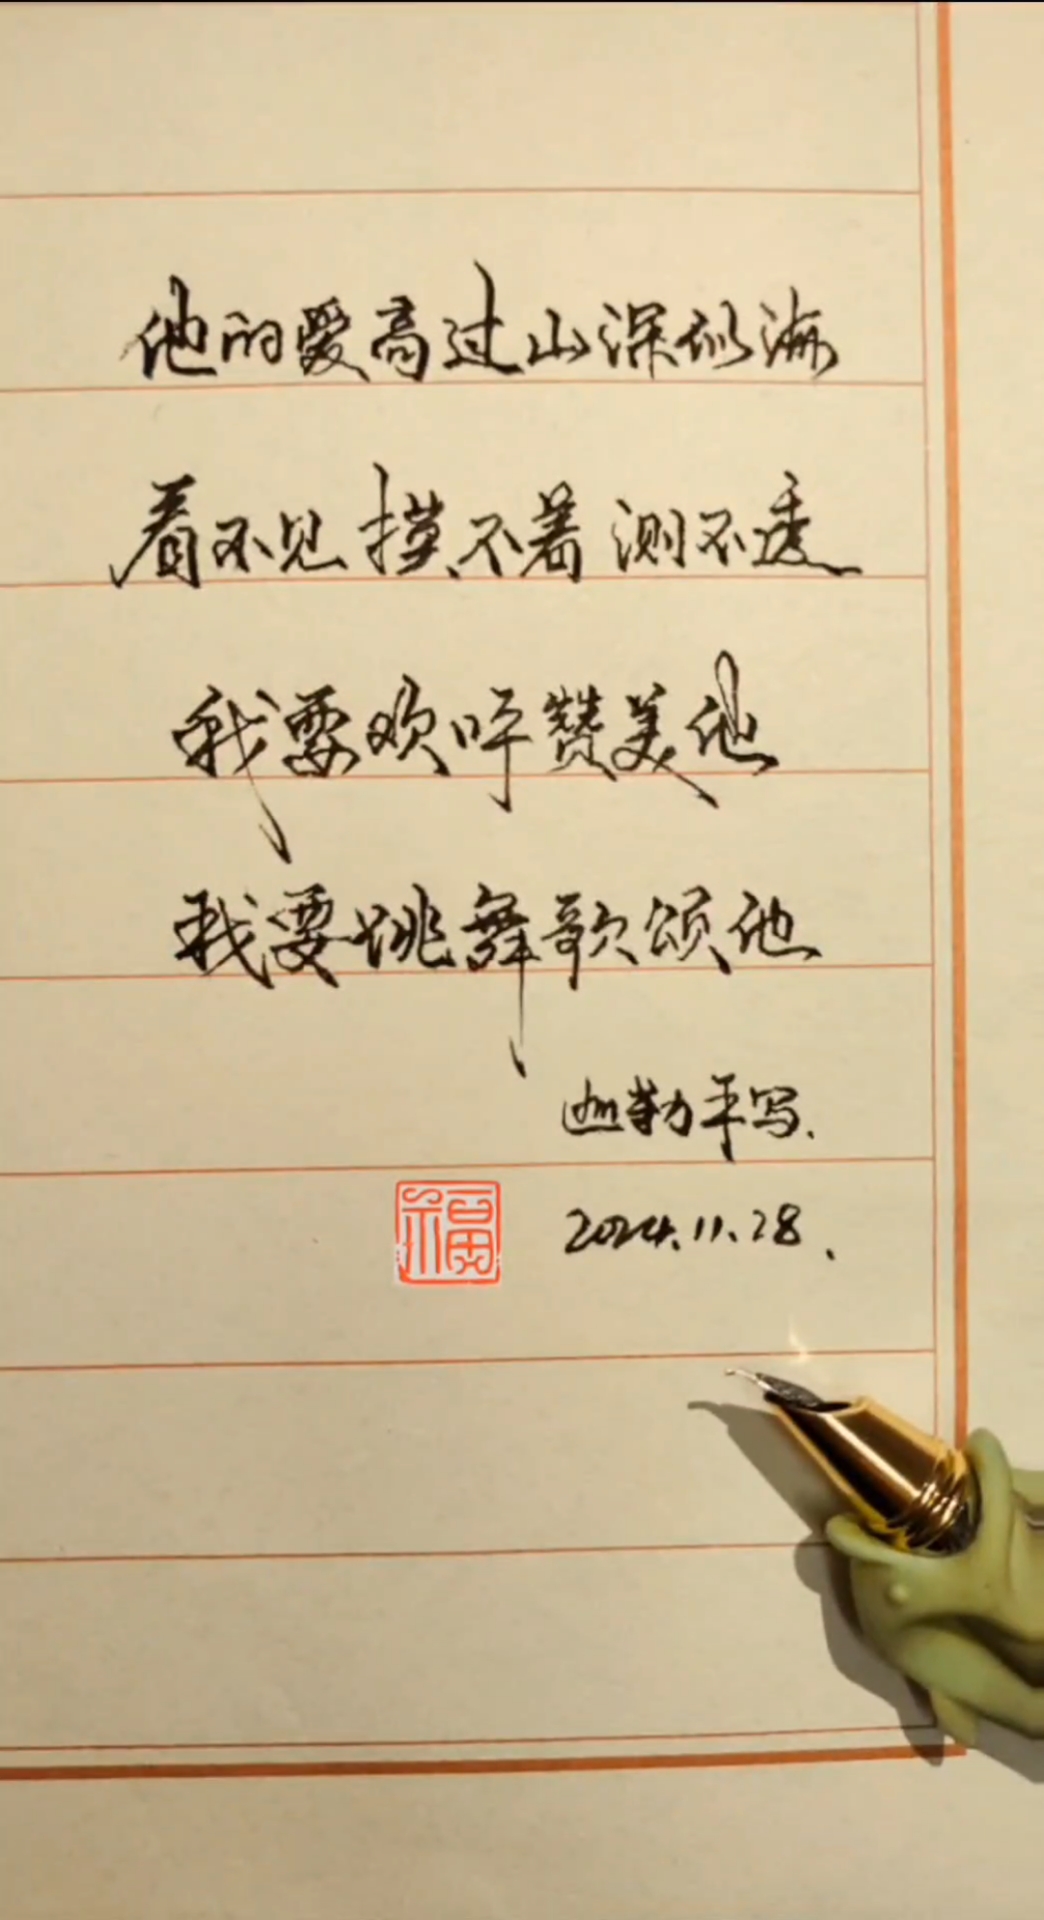 他的爱高过山深似海
看不见摸不着测不透
我要欢呼赞美他
我要跳舞歌颂他
迦勒平写.
2024.11.28.
福